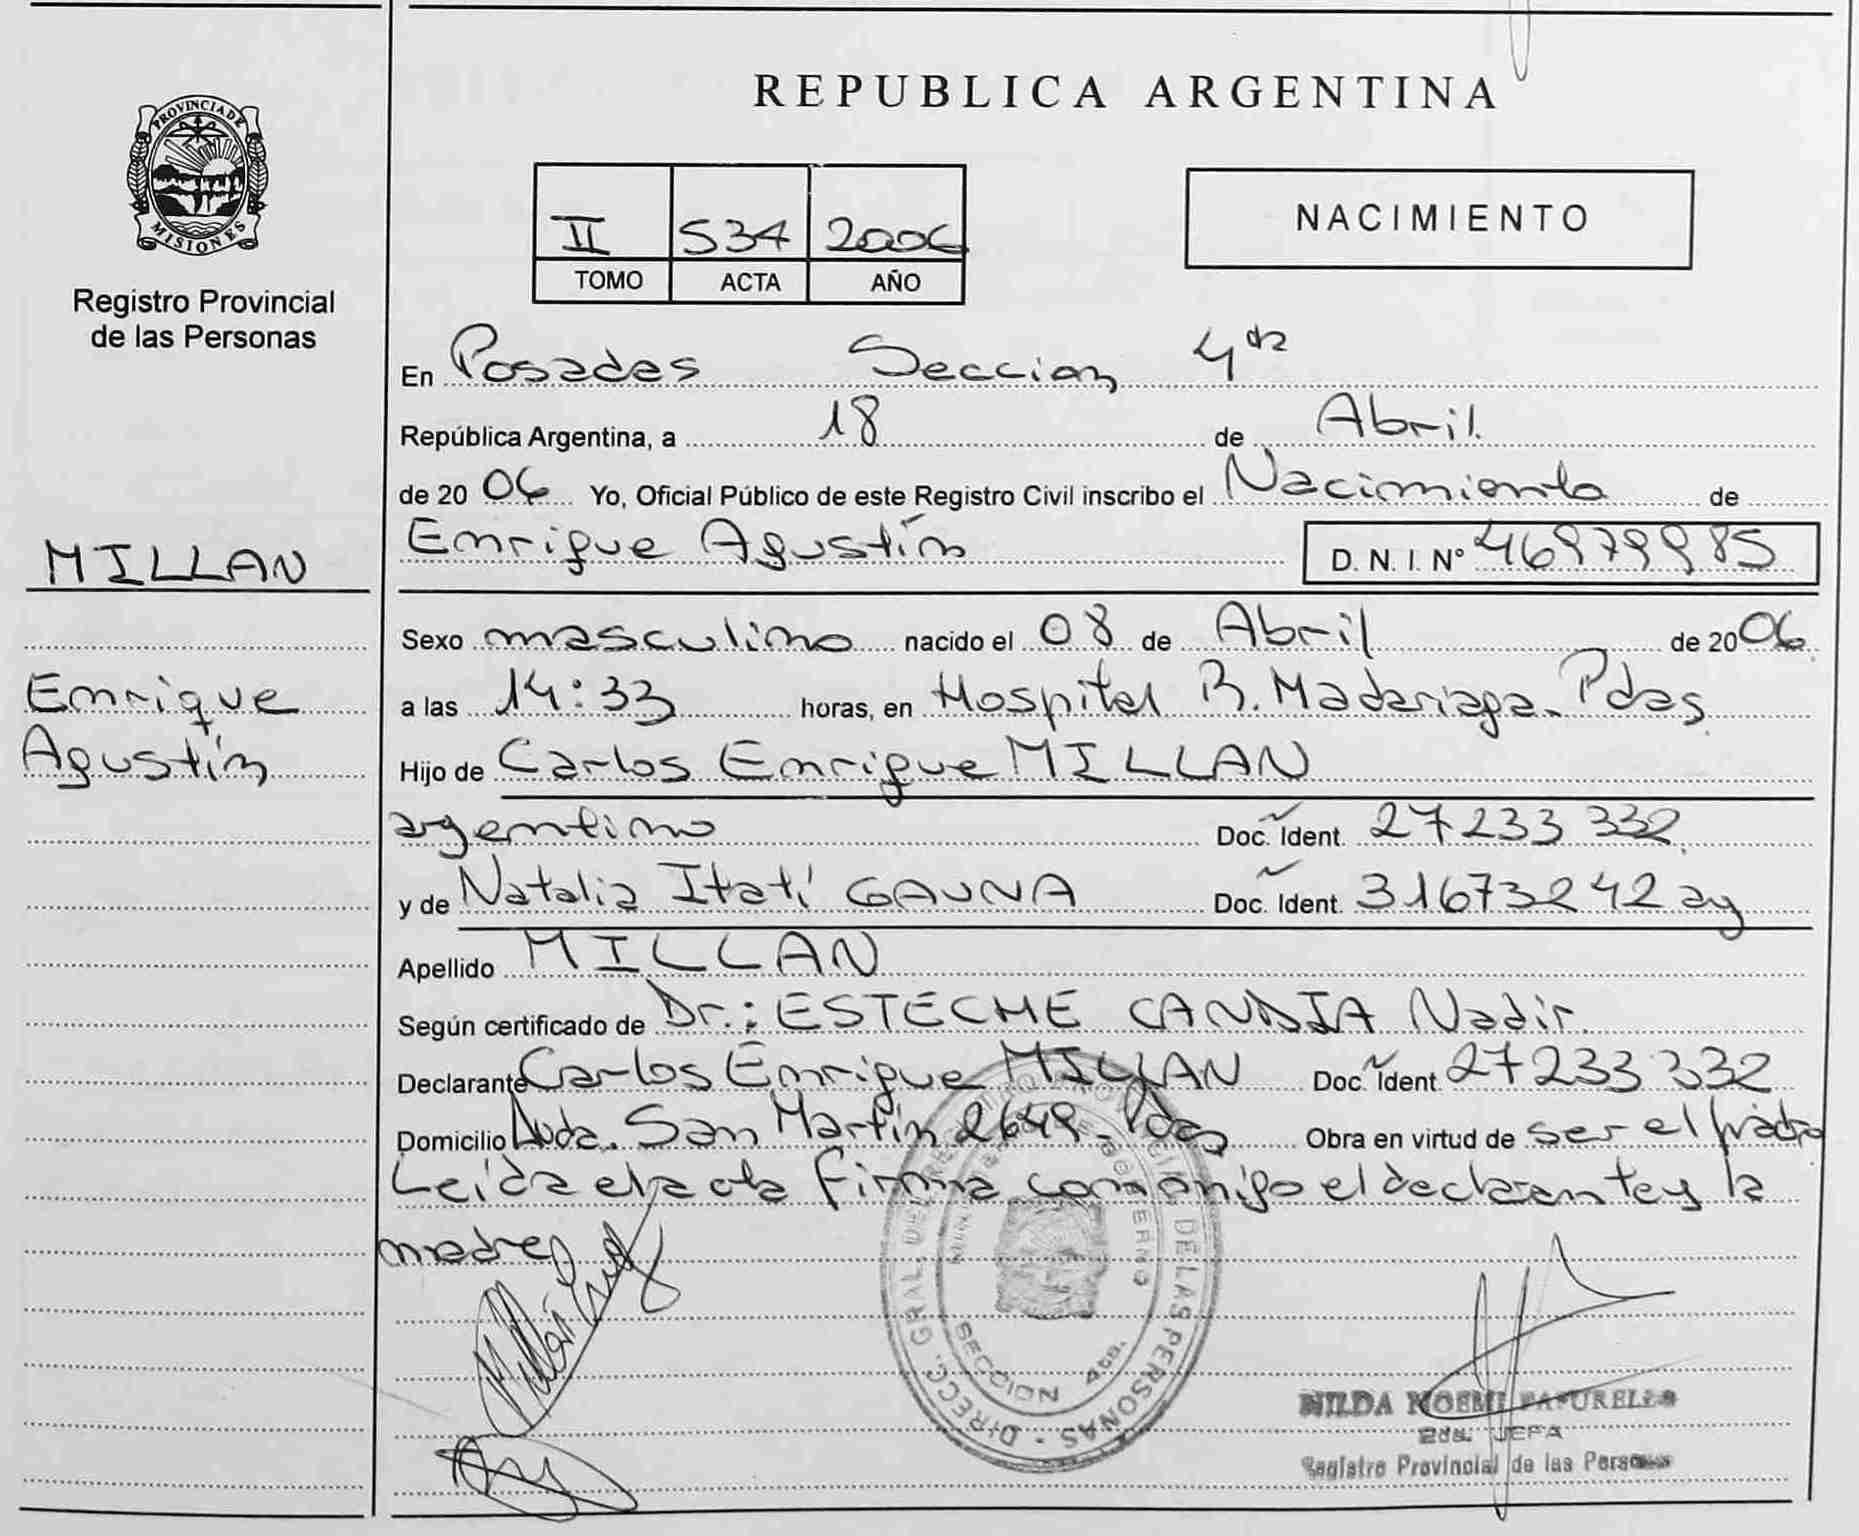 REPUBLICA ARGENTINA
PROVINCIA DE MISIONES
Registro Provincial
de las Personas
II 534 2006
TOMO ACTA AÑO
NACIMIENTO
En Posadas Seccion 4ta
República Argentina, a 18 de Abril
de 2006 Yo, Oficial Público de este Registro Civil inscribo el Nacimiento de
Enrique Agustín D. N. I. Nº 46979985
MILLAN
Enrique
Agustín
Sexo masculino nacido el 08 de Abril de 2006
a las 14:33 horas, en Hospital R. Madariaga. Pdas.
Hijo de Carlos Enrique MILLAN
argentino Doc. Ident. 27233332
y de Natalia Itatí GAUNA Doc. Ident. 31673242 ay
Apellido MILLAN
Según certificado de Dr.: ESTECHE CANDIA Nadir.
Declarante Carlos Enrique MILLAN Doc. Ident 27233332
Domicilio Avda. San Martín 2649- Pdas Obra en virtud de ser el padre
Leída el acta firma conmigo el declarante y la
madre
DIRECC. GRAL. DE LAS PERSONAS
SECCION 4ta.
NILDA NOEMI
2da. JEFA
Registro Provincial de las Personas